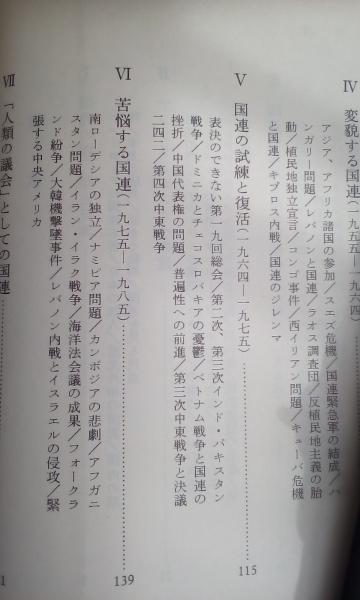 Ⅳ 変貌する国連(一九五五―一九六四)
アジア、アフリカ諸国の参加/スエズ危機/国連緊急軍の結成/ハ
ンガリー問題/レバノンと国連/ラオス調査団/反植民地主義の胎
動/植民地独立宣言/コンゴ事件/西イリアン問題/キューバ危機
と国連/キプロス内戦/国連のジレンマ
Ⅴ 国連の試練と復活(一九六四―一九七五)……………115
表決のできない第一九回総会/第二次、第三次インド・パキスタン
戦争/ドミニカとチェコスロバキアの憂鬱/ベトナム戦争と国連の
挫折/中国代表権の問題/普遍性への前進/第三次中東戦争と決議
二四二/第四次中東戦争
Ⅵ 苦悩する国連(一九七五―一九八五)……………139
南ローデシアの独立/ナミビア問題/カンボジアの悲劇/アフガニ
スタン問題/イラン・イラク戦争/海洋法会議の成果/フォークラ
ンド紛争/大韓機撃墜事件/レバノン内戦とイスラエルの侵攻/緊
張する中央アメリカ
Ⅶ 「人類の議会」としての国連